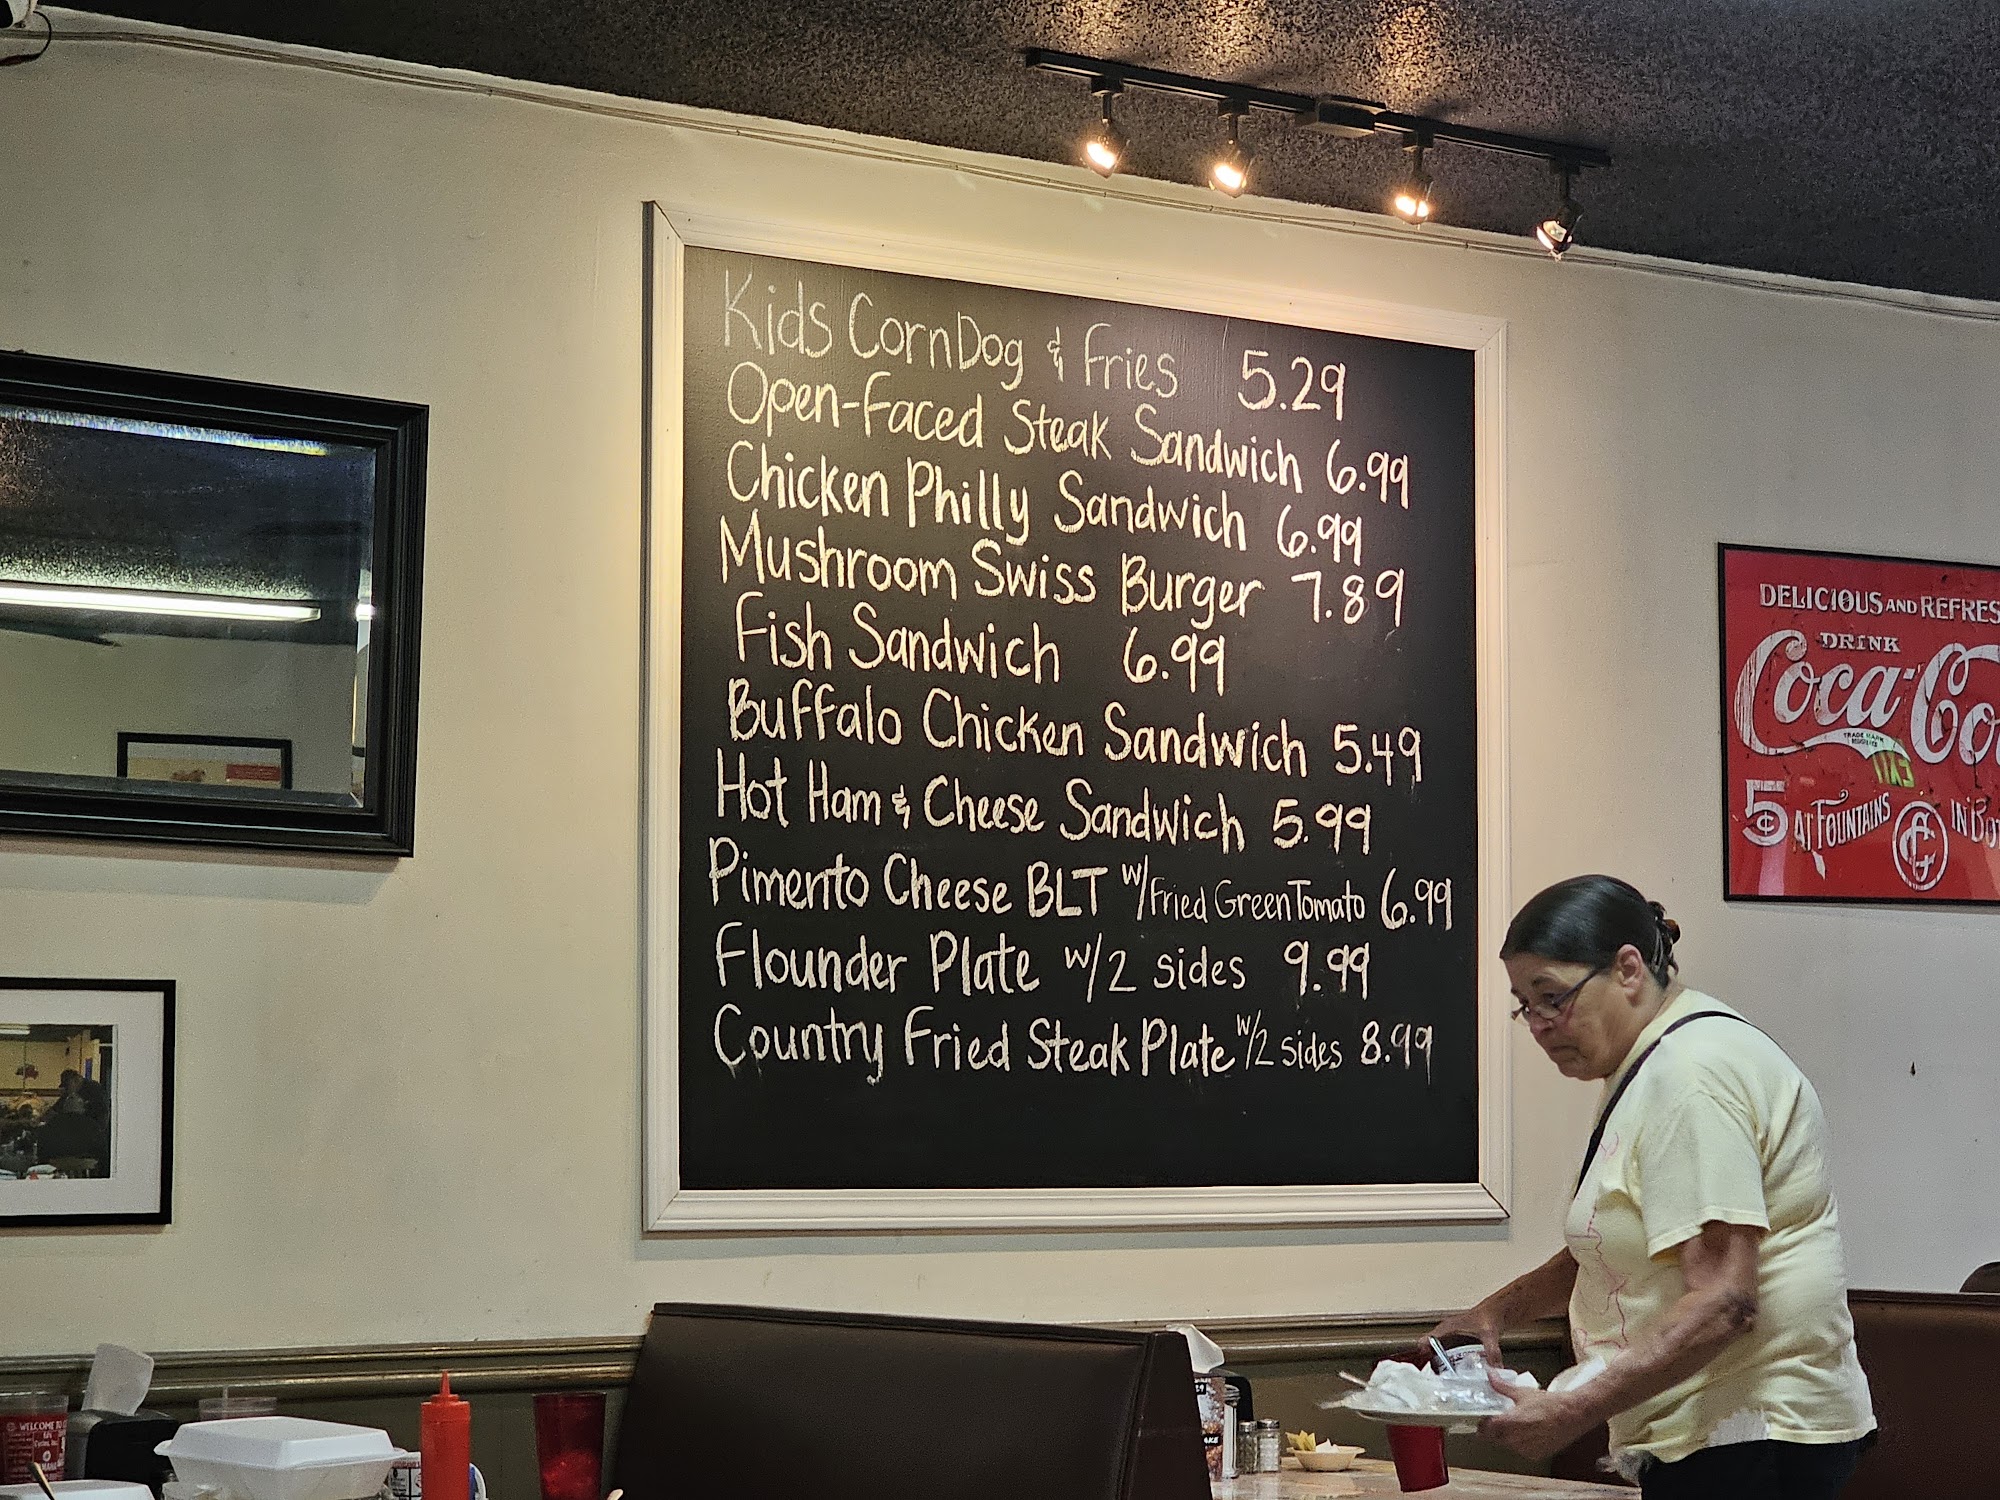 Kids Corn Dog & Fries 5.29
Open-Faced Steak Sandwich 6.99
Chicken Philly Sandwich 6.99
Mushroom Swiss Burger 7.89
Fish Sandwich 6.99
Buffalo Chicken Sandwich 5.49
Hot Ham & Cheese Sandwich 5.99
Pimento Cheese BLT w/Fried Green Tomato 6.99
Flounder Plate w/2 sides 9.99
Country Fried Steak Plate w/2 sides 8.99
DELICIOUS AND REFRES
DRINK
Coca-Co
TRADE MARK
5¢ AT FOUNTAINS IN BO
WELCOME TO